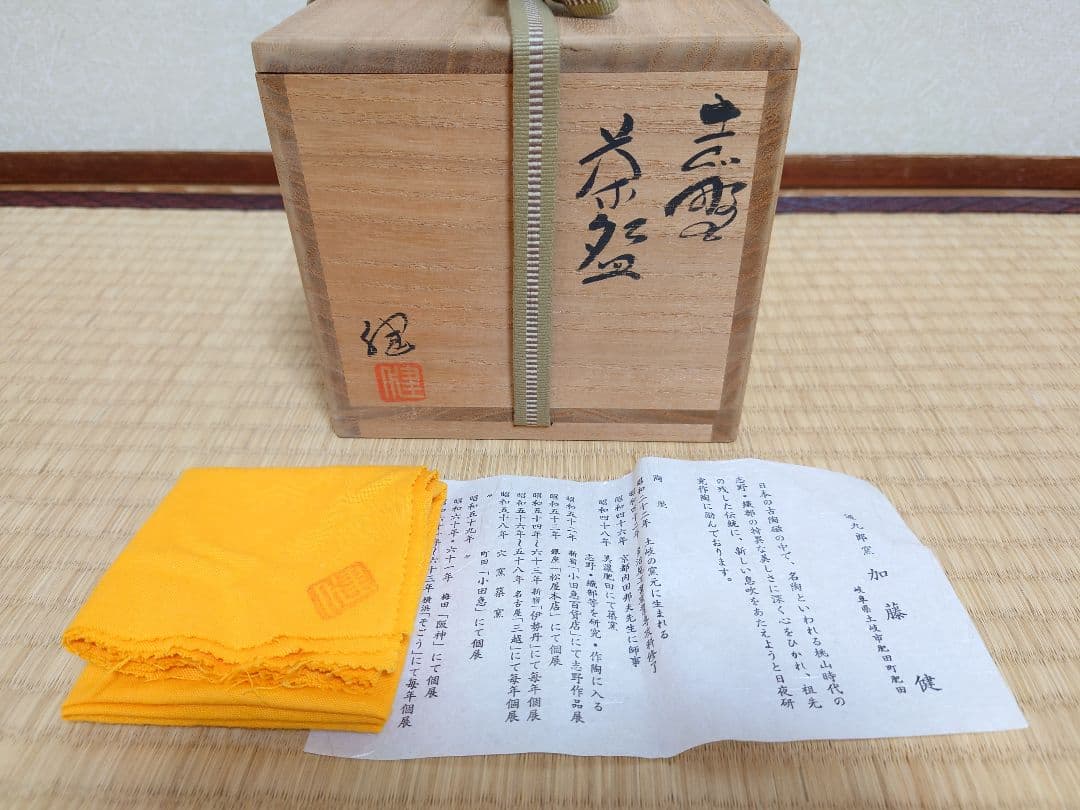 志野
茶盌
健
健
健
九郎窯 加藤 健
岐阜県土岐市肥田町肥田
日本の古陶磁の中で、名陶といわれる桃山時代の
志野・織部の特異な美しさに深く心をひかれ、祖先
の残した伝統に、新しい息吹をあたえようと日夜研
究作陶に励んでおります。
陶歴
昭和二十二年 土岐の窯元に生まれる
昭和四十三年
昭和四十六年 京都内田邦夫先生に師事
昭和四十八年 美濃肥田にて築窯
志野・織部等を研究・作陶に入る
昭和五十二年 新宿「小田急百貨店」にて志野作品展
昭和五十二年 銀座「松屋本店」にて個展
昭和五十四年～六十三年 新宿「伊勢丹」にて毎年個展
昭和五十六年～五十八年 名古屋「三越」にて毎年個展
昭和五十八年 穴窯築窯
〃 町田「小田急」にて個展
昭和五十九年 〃
昭和六十年・六十一年 梅田「阪神」にて個展
六十三年 横浜「そごう」にて毎年個展